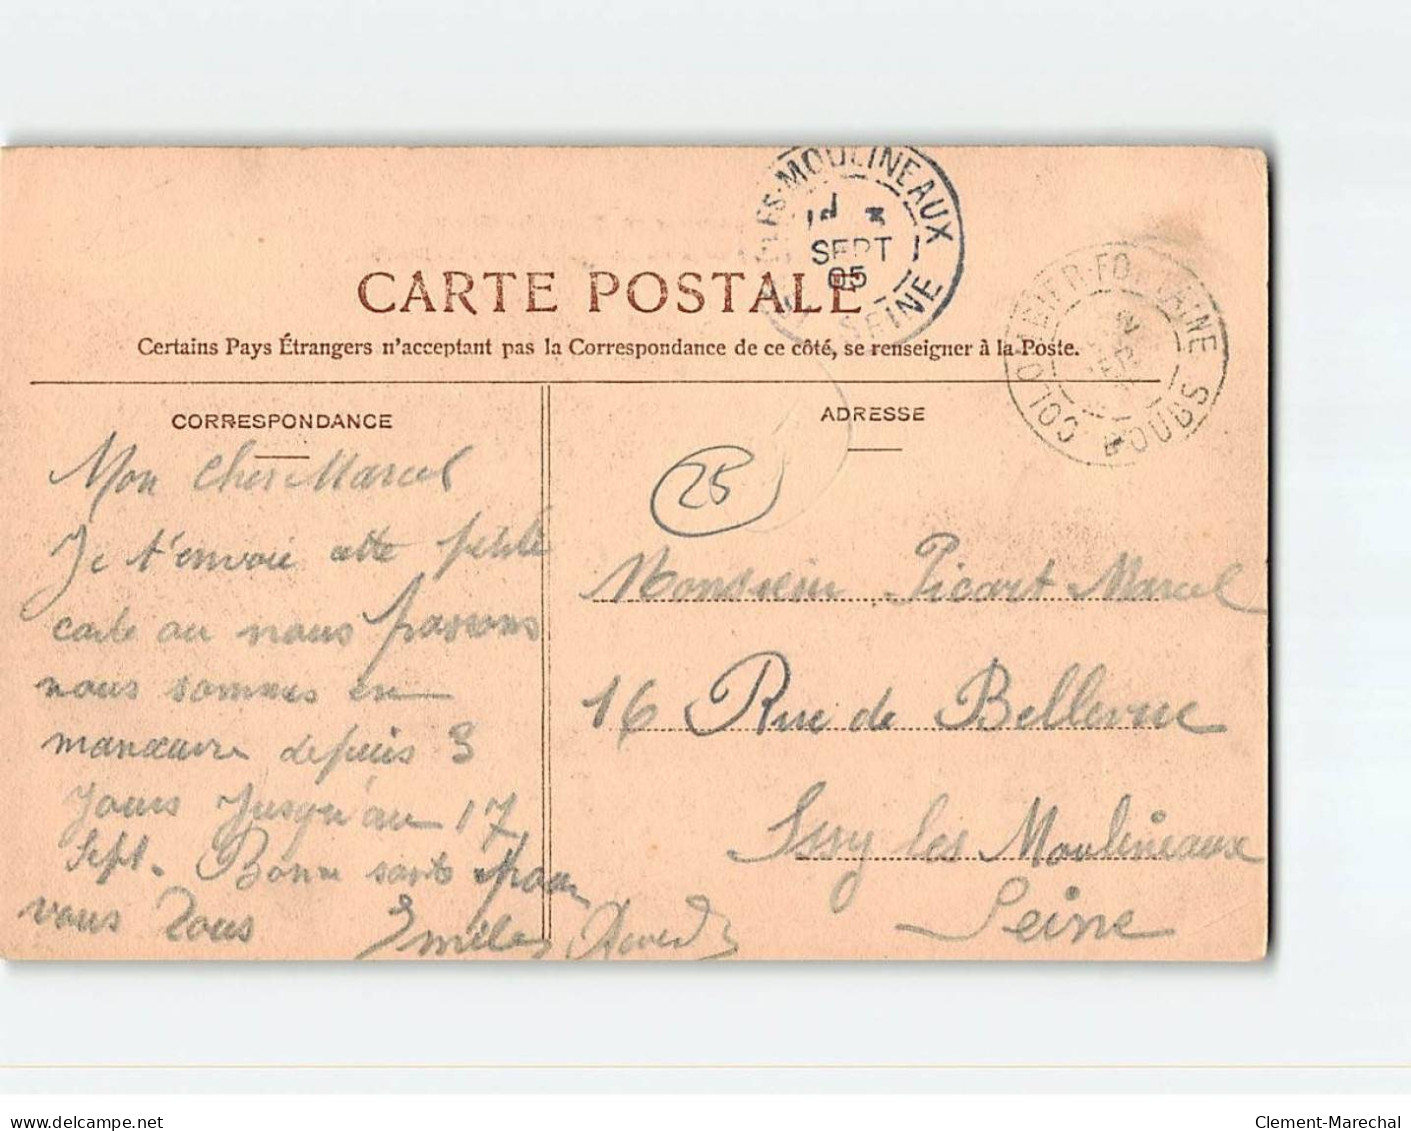 LES-MOULINEAUX
SEPT
05
SEINE
COLOMBIER-FONTAINE
DOUBS
CARTE POSTALE
Certains Pays Étrangers n'acceptant pas la Correspondance de ce côté, se renseigner à la Poste.
CORRESPONDANCE
Mon cher Marcel
Je t'envoie cette petite
carte ou nous passons
nous sommes en
manœuvre depuis 3
Jours Jusqu'au 17
Sept. Bonne santé pour
vous Tous
Emile
ADRESSE
25
Monsieur Picart Marcel
16 Rue de Bellevue
Issy les Moulineaux
Seine
delcampe.net
Clement-Marechal